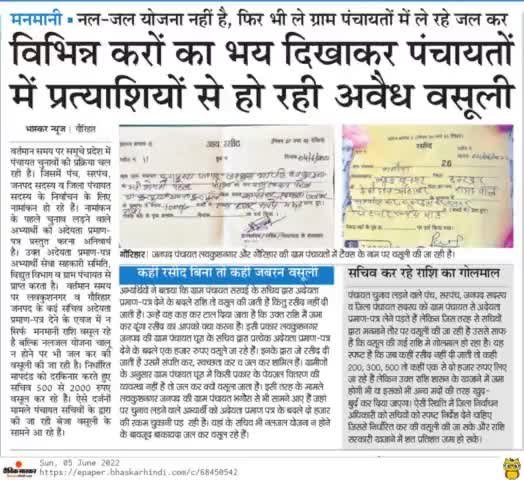 मनमानी • नल-जल योजना नहीं है, फिर भी ले ग्राम पंचायतों में ले रहे जल कर
विभिन्न करों का भय दिखाकर पंचायतों
में प्रत्याशियों से हो रही अवैध वसूली
भास्कर न्यूज | गौरिहार
वर्तमान समय पर समूचे प्रदेश में
पंचायत चुनावों की प्रक्रिया चल
रही है। जिसमें पंच, सरपंच,
जनपद सदस्य व जिला पंचायत
सदस्य के निर्वाचन के लिए
नामांकन हो रहे हैं। नामांकन
के पहले चुनाव लड़ने वाले
अभ्यार्थी को अदेयता प्रमाण-
पत्र प्रस्तुत करना अनिवार्य
है। उक्त अदेयता प्रमाण-पत्र
अभ्यार्थी सेवा सहकारी समिति,
विद्युत विभाग व ग्राम पंचायत से
प्राप्त करता है। वर्तमान समय
पर लवकुशनगर व गौरिहार
जनपद के कई सचिव अदेयता
प्रमाण-पत्र देने के एवज में न
सिर्फ मनमानी राशि वसूल रहे
है बल्कि नलजल योजना चालू
न होने पर भी जल कर की
वसूली की जा रही है। निर्धारित
मापदंड को दरकिनार करते हुए
सचिव 500 से 2000 रुपए
वसूल कर रहे हैं। ऐसे दर्जनों
मामले पंचायत सचिवों के द्वारा
की जा रही बेजा वसूली के
सामने आ रहे हैं।
रसीद
गौरिहार। जनपद पंचायत लवकुशनगर और गौरिहार की ग्राम पंचायतों में टैक्स के नाम पर वसूली की जा रही है।
कहीं रसीद बिना तो कहीं जबरन वसूली
अभ्यर्थियों ने बताया कि ग्राम पंचायत सरवई के सचिव द्वारा अदेयता
प्रमाण-पत्र देने के बदले राशि तो वसूल की जाती है किंतु रसीद नहीं दी
जाती है। उन्हें यह कह कर टाल दिया जाता है कि उक्त राशि में जमा
कर दूंगा रसीद का आपको क्या करना है। इसी प्रकार लवकुशनगर
जनपद की ग्राम पंचायत घूरा के सचिव द्वारा प्रत्येक अदेयता प्रमाण-पत्र
देने के बदले एक हजार रुपए वसूले जा रहे हैं। इनके द्वारा जो रसीद दी
जाती है उसमें संपत्ति कर, स्वच्छता कर व जल कर शामिल हैं। ग्रामीणों
के अनुसार ग्राम पंचायत घूरा में किसी प्रकार के पेयजल वितरण की
व्यवस्था नहीं है तो जल कर क्यों वसूला जाता है। इसी तरह के मामले
लवकुशनगर जनपद की ग्राम पंचायत भगौरा से भी सामने आए हैं जहां
पर चुनाव लड़ने वाले अभ्यार्थी को अदेयता प्रमाण पत्र के बदले दो हजार
की रकम चुकानी पड़ रही है। यहां के सचिव भी नलजल योजना न होने
के बावजूद बाकायदा जल कर वसूल रहे हैं।
सचिव कर रहे राशि का गोलमाल
पंचायत चुनाव लड़ने वाले पंच, सरपंच, जनपद सदस्य
व जिला पंचायत सदस्य को ग्राम पंचायत से अदेयता
प्रमाण-पत्र लेने पड़ते हैं लेकिन जिस तरह से सचिवों
द्वारा मनमाने तौर पर वसूली की जा रही है उससे साफ
है कि वसूल की गई राशि में गोलमाल हो रहा है। यह
स्पष्ट है कि जब कहीं रसीद नहीं दी जाती तो कहीं
200, 300, 500 तो कहीं एक से दो हजार रुपए लिए
जा रहे हैं लेकिन उक्त राशि शासन के खजाने में जमा
होगी भी या इसको भी अन्य मदों की तरह खुर्द-
बुर्द कर दिया जाएगा। ऐसी स्थिति में जिला निर्वाचन
अधिकारी को सचिवों को स्पष्ट निर्देश देने चाहिए
जिससे निर्धारित कर की वसूली की जा सके और राशि
सरकारी खजाने में शत प्रतिशत जमा हो सके।
दैनिक भास्कर
Sun, 05 June 2022
https://epaper.bhaskarhindi.com/c/68450542